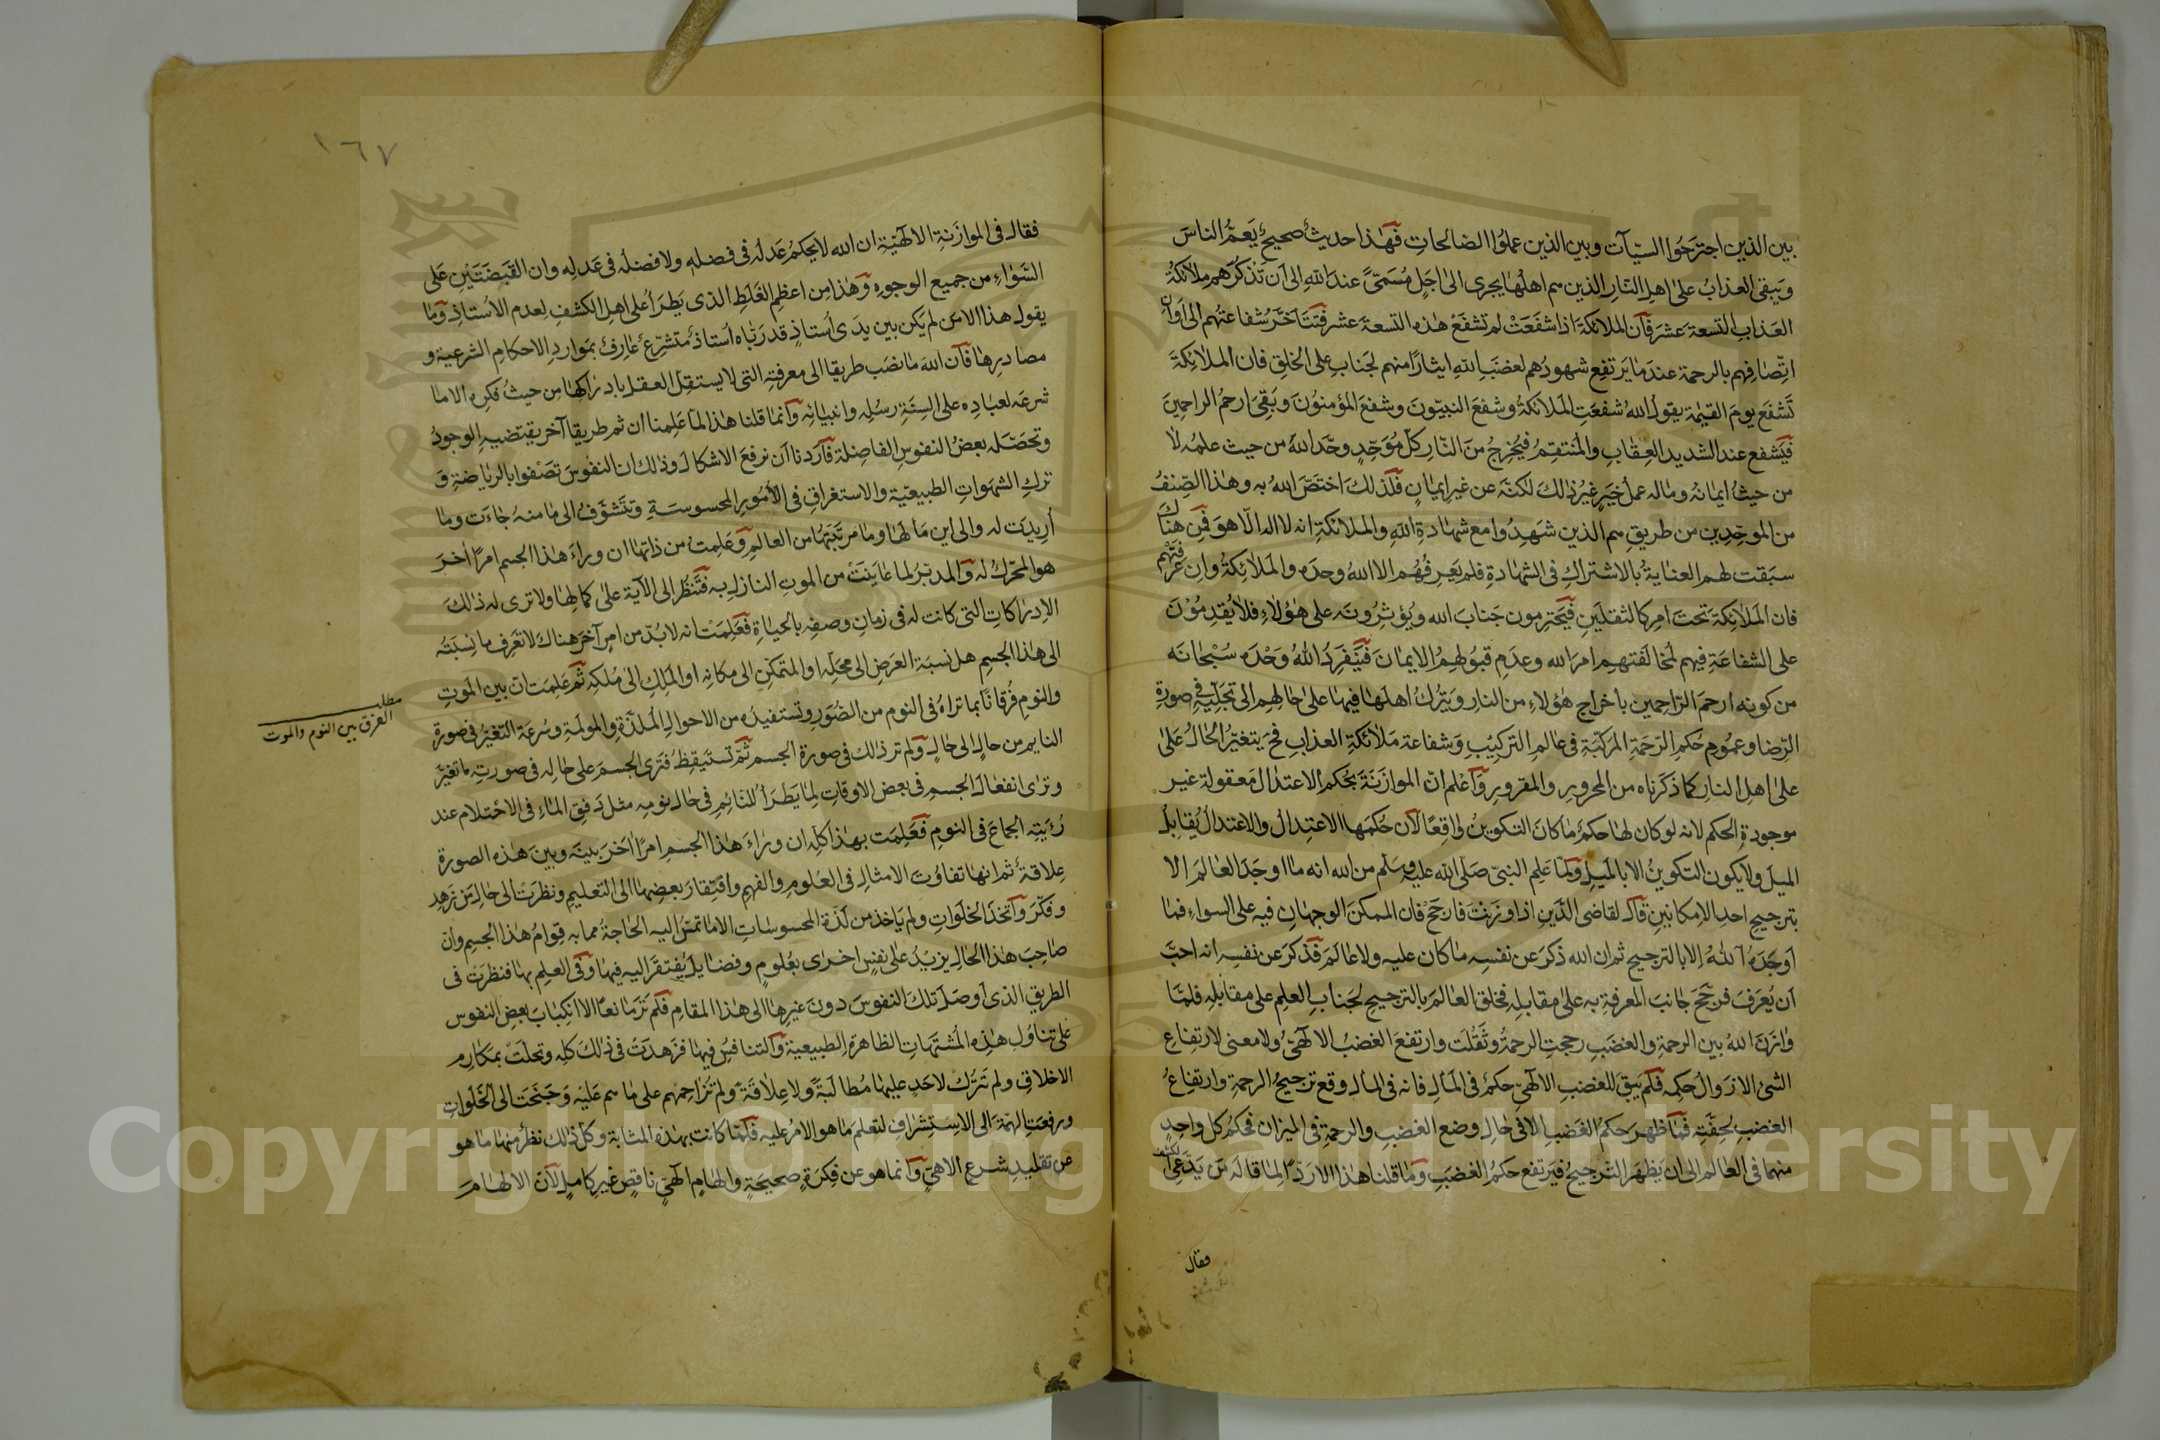 بين الذين اجترحوا السيّآت وبين الذين عملوا الصالحات فهذا حديث صحيح يعمّ الناس
ويبقى العذاب على اهل النار الذين هم اهلها يجرى الى اجل مسمّى عند الله الى ان تذكرهم ملائكة
العذاب التسعة عشر فان الملائكة اذا شفعت لم تشفع هذه التسعة عشر فتتأخر شفاعتهم الى اوان
اتصافهم بالرحمة عندما يرتفع شهودهم لغضب الله ايثارا منهم لجناب على الخلق فان الملائكة
تشفع يوم القيمة يقول الله شفعت الملائكة وشفع النبيّون وشفع المؤمنون وبقى ارحم الراحمين
فيشفع عند الشديد العقاب والمنتقم فيخرج من النار كل موحّد وحّد الله من حيث علمه لا
من حيث ايمانه وماله عمل خير غير ذلك لكنه عن غير ايمان فلذلك اختصّ الله به وهذا الصنف
من الموحدين من طريق هم الذين شهدوا مع شهادة الله والملائكة انه لا اله الا هو فمن هناك
سبقت لهم العناية بالاشتراك فى الشهادة فلم يعرفهم الا الله وحده والملائكة وان عرفتهم
فان الملائكة تحت امر كالثقلين فيحترمون جناب الله ويؤثرونه على هؤلاء فلا يقدمون
على الشفاعة فيهم لمخالفتهم امر الله وعدم قبولهم الايمان فيتفرد الله وحده سبحانه
من كونه ارحم الراحمين باخراج هؤلاء من النار ويترك اهلها فيها على حالهم الى تجليه فى صورة
الرضا وعموم حكم الرحمة المركبة فى عالم التركيب وشفاعة ملائكة العذاب فح يتغير الحال على
على اهل النار كما ذكرناه من المحرور والمقرور واعلم انّ الموازنة بحكم الاعتدال معقولة غير
موجودة الحكم لانه لو كان لها حكم ما كان التكوين واقعا لان حكمها الاعتدال والاعتدال يقابل
الميل ولا يكون التكوين الا بالميل ولما علم النبى صلى الله عليه وسلم من الله انه ما اوجد العالم الا
بترجيح احد الامكانين قال لقاضى الدين اذا وزنت فارجح فان الممكن الوجهان فيه على السواء فما
اوجده الله الا بالترجيح ثم ان الله ذكر عن نفسه ما كان عليه ولا عالم فذكر عن نفسه انه احبّ
ان يعرف فرجّح جانب المعرفة به على مقابله فخلق العالم بالترجيح لجناب العلم على مقابله فلمّا
وازن الله بين الرحمة والغضب رجحت الرحمة وثقلت وارتفع الغضب الالهى ولا معنى لارتفاع
الشئ الا زوال حكمه فلم يبق للغضب الالهى حكم فى المآل فانه فى المآل وقع ترجيح الرحمة وارتفاع
الغضب لخفته فما ظهر حكم الغضب الا فى حال وضع الغضب والرحمة فى الميزان فحكم كل واحد
منهما فى العالم الى ان يظهر الترجيح فيرتفع حكم الغضب وما قلنا هذا الا ردّا لما قاله من يدّعى الكشف
فقال
١٦٧
فقال فى الموازنة الالهية ان الله لا يحكم عدله فى فضله ولا فضله فى عدله وان القبضتين على
السواء من جميع الوجوه وهذا من اعظم الغلط الذى يطرأ على اهل الكشف لعدم الاستاذ وما
يقول هذا الا من لم يكن بين يدى استاذ قد ربّاه استاذ متشرّع عارف بموارد الاحكام الشرعية و
مصادرها فان الله ما نصب طريقا الى معرفته التى لا يستقل العقل بادراكها من حيث فكره الا ما
شرعه لعباده على السنة رسله وانبيائه وانما قلنا هذا لما علمنا ان ثم طريقا آخر يقتضيه الوجود
وتحصّله بعض النفوس الفاضلة فاردنا ان نرفع الاشكال وذلك ان النفوس تصفوا بالرياضة و
ترك الشهوات الطبيعيّة والاستغراق فى الامور المحسوسة وتتشوّف الى ما منه جاءت وما
اريدت له والى اين مآلها وما مرتبتها من العالم وعلمت من ذاتها ان وراء هذا الجسم امرا آخر
هو المحرك له والمدبّر لما عاينت من الموت النازل به فتنظر الى الآية على كمالها ولا ترى له ذلك
الادراكات التى كانت له فى زمان وصفه بالحياة فعلمت انه لابدّ من امر آخر هناك لا تعرف ما نسبته
الى هذا الجسم هل نسبة العرض الى محله او المتمكن الى مكانه او الملك الى ملكه ثم علمت ان بين الموت
والنوم فرقانا بما تراه فى النوم من الصور وتستفيده من الاحوال الملذّة والمولمة وسرعة التغيّر فى صورة
النايم من حال الى حال ولم تر ذلك فى صورة الجسم ثم تستيقظ فترى الجسم على حاله فى صورته ما تغيّر
وترى انفعال الجسم فى بعض الاوقات لما يطرأ للنائم فى حال نومه مثل دفق الماء فى الاحتلام عند
رؤيته الجماع فى النوم فعلمت بهذا كله ان وراء هذا الجسم امرا آخر بينه وبين هذه الصورة
علاقة ثم انها تفاوت الامثال فى العلوم والفهم وافتقار بعضها الى التعليم ونظرت الى حال من زهد
وفكّر واتخذ الخلوات ولم ياخذ من لذة المحسوسات الا ما تمسّ اليه الحاجة مما به قوام هذا الجسم وان
صاحب هذا الحال يزيد على نفس اخرى بعلوم وفضايل يفتقر اليه فيها وفى العلم بها فنظرت فى
الطريق الذى اوصل تلك النفوس دون غيرها الى هذا المقام فلم تر مانعا الا انكباب بعض النفوس
على تناول هذه المشتهيات الظاهرة الطبيعية والتنافس فيها فزهدت فى ذلك كله وتحلّت بمكارم
الاخلاق ولم تترك لاحد عليها مطالبة ولا علاقة ولم تزاحمهم على ما هم عليه وجنحت الى الخلوات
ورفعت الهمة الى الاستشراف لتعلم ما هو الامر عليه فلما كانت بهذه المثابة وكل ذلك نظر منها ما هو
عن تقليد شرع الاهى وانما هو عن فكرة صحيحة والهام الهى ناقص غير كامل لان الالهام
مطلب
الفرق بين النوم والموت
Copyright © King Saud University